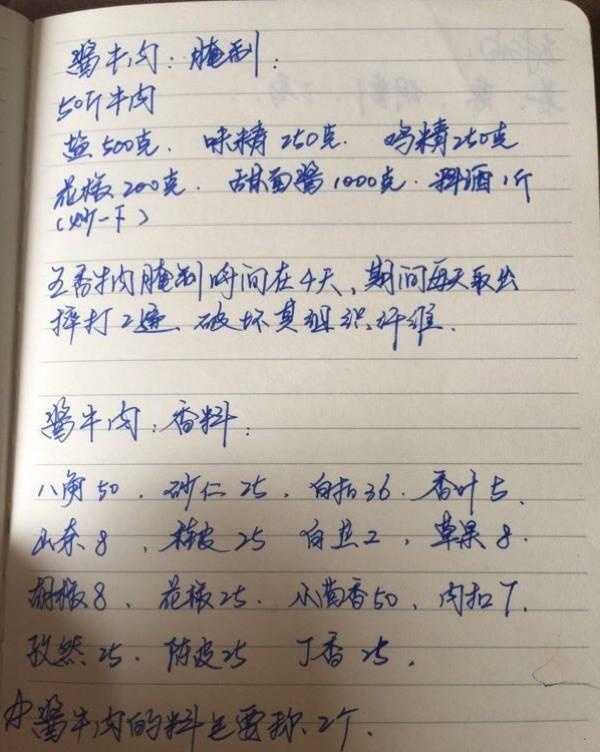 酱牛肉：腌制：
50斤牛肉
盐500克. 味精250克. 鸡精250克
花椒200克. 甜面酱1000克. 料酒1斤
(炒一下)
五香牛肉腌制时间在4天、期间每天取出
摔打2遍、破坏其组织纤维.
酱牛肉：香料：
八角50 . 砂仁25 . 白扣36 . 香叶5.
山奈8 . 桂皮25 白芷2 , 草果8.
胡椒8 . 花椒25. 小茴香50 , 肉扣7.
孜然25. 陈皮25 丁香25 .
酱牛肉的料包要称.2个.